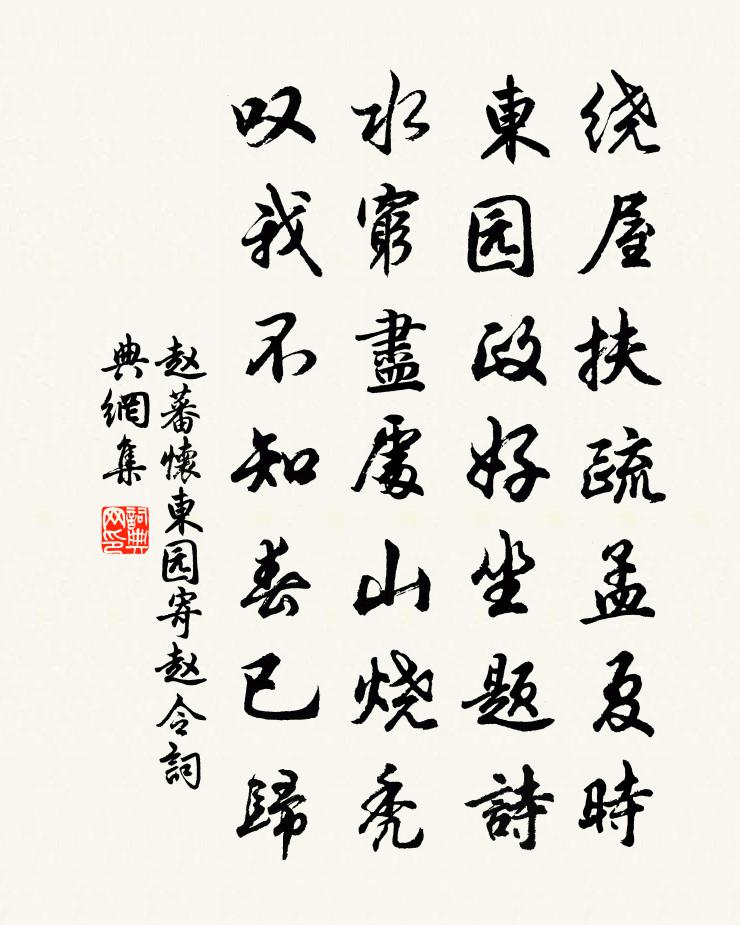 绕屋扶疏孟夏時
東园政好坐题詩
水窮盡處山燒秃
叹我不知春已歸
赵蕃懷東园寄赵令詞
典網集
詞典网印